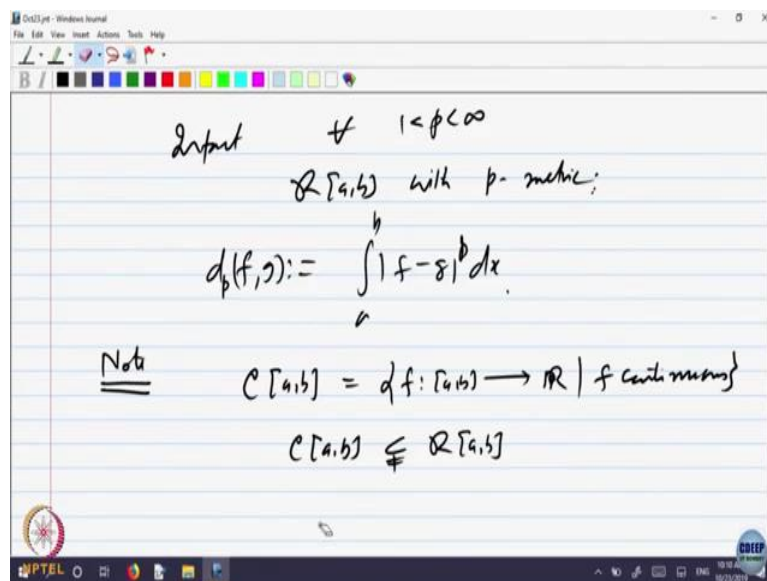 Oct23.jnt - Windows Journal
File Edit View Insert Actions Tools Help
B I
∀ 1<p<∞
R[a,b] with p- metric;
d_p(f,g):= ∫_a^b |f-g|^p dx.
Note C[a,b] = {f: [a,b] → R | f continuous}
C[a,b] ⊊ R[a,b]
NPTEL
CDEEP
ENG
10/23/2019